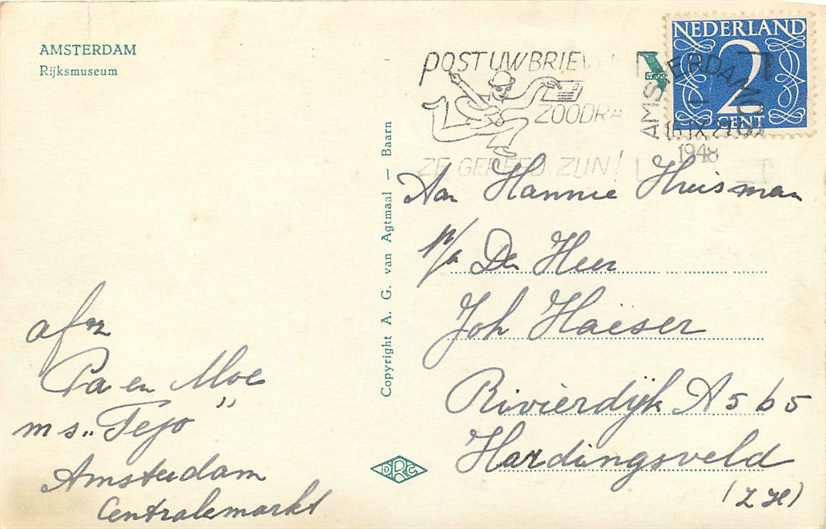 AMSTERDAM
Rijksmuseum
POST UW BRIEVEN
ZOODRA
ZE GEREED ZIJN!
AMSTERDAM
1948
NEDERLAND
2
CENT
Copyright A. G. van Agtmaal — Baarn
Aan Hannie Huisman
p/a De Heer
Joh Haëser
Rivierdijk A 565
Hardingsveld
(Z H)
afz
Pa en Moe
m s „Tejo"
Amsterdam
Centralemarkt
DRG